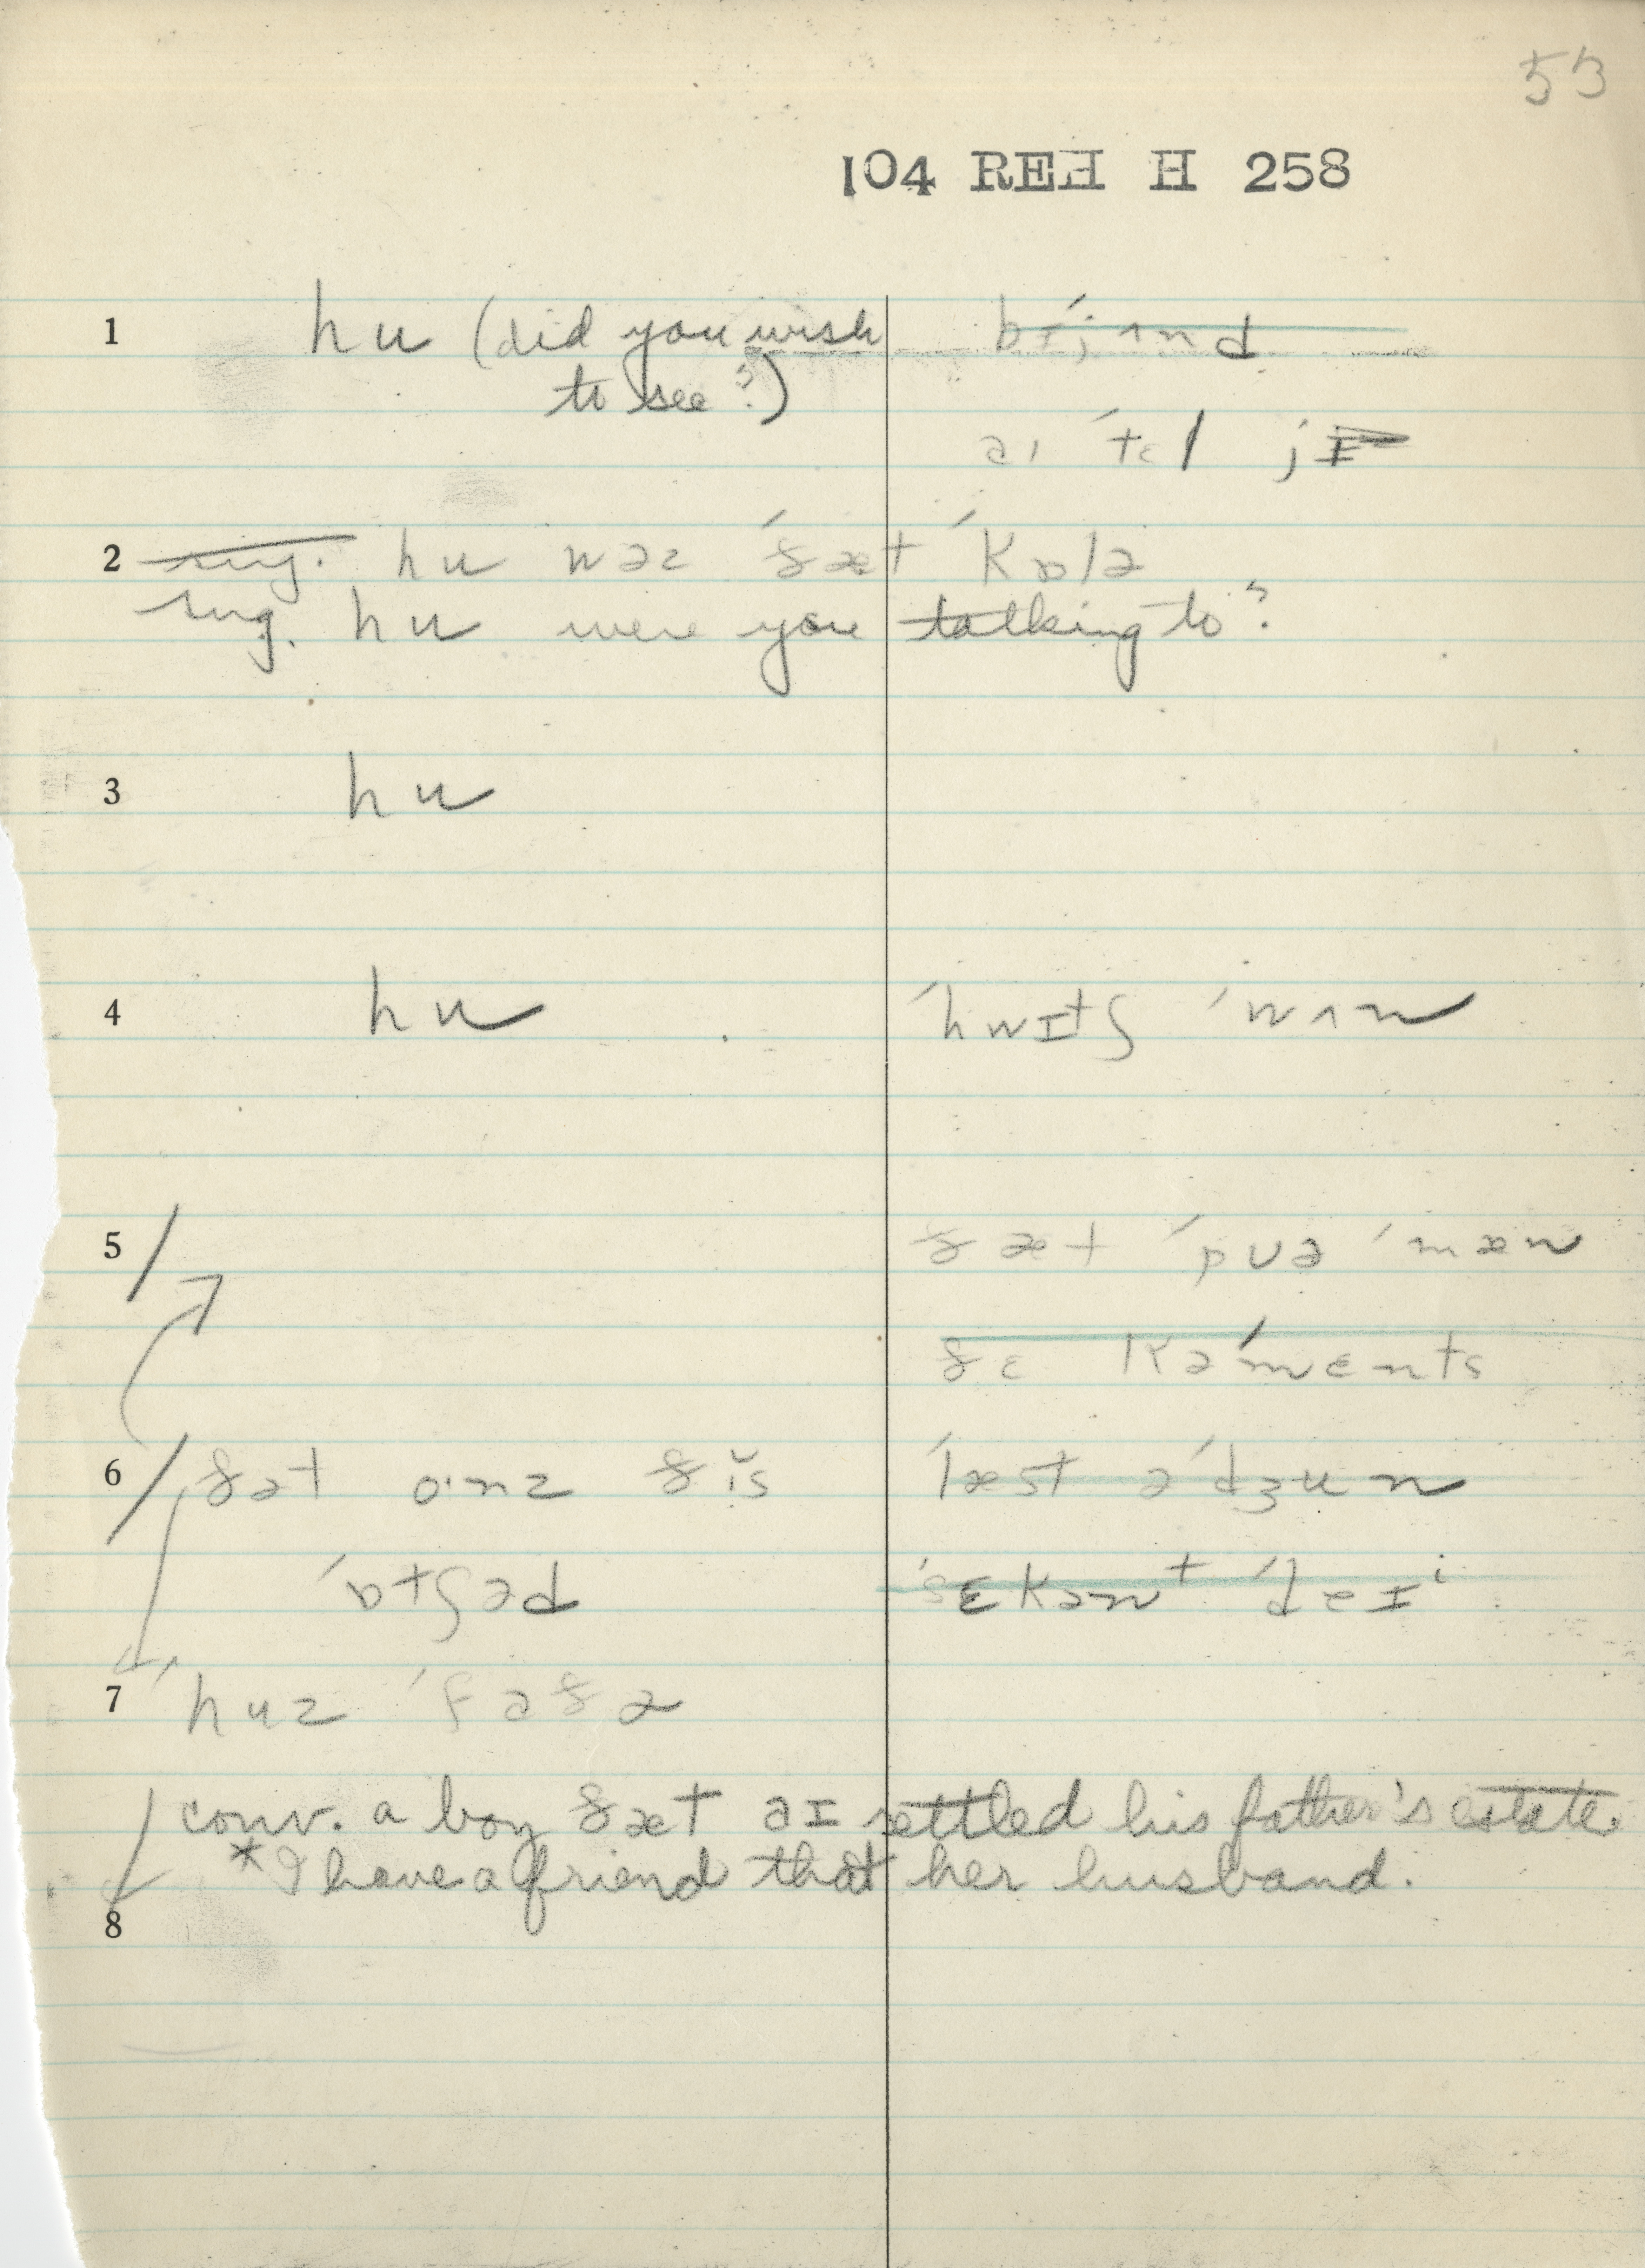 53
104 REH H 258
1 hu (did you wish bɨˈjʌnd
to see?)
aɪ ˈtɛl jɪ
2 sug. hu wəz ˈðæt ˈkɒlə
sug. hu were you talking to?
3 hu
4 hu ˈhwɪtʃ ˈwʌn
5 ðæt ˈpʊə ˈmæn
ðɛ kəˈmɛnts
6 ðət oˑnz ðɪ̆s ˈlæst əˈdʒun
ˈɒtʃəd ˈsɛkənt ˈdeɪ
7 ˈhuz ˈfaðə
conv. a boy ðæt aɪ settled his father's estate
*I have a friend that her husband.
8